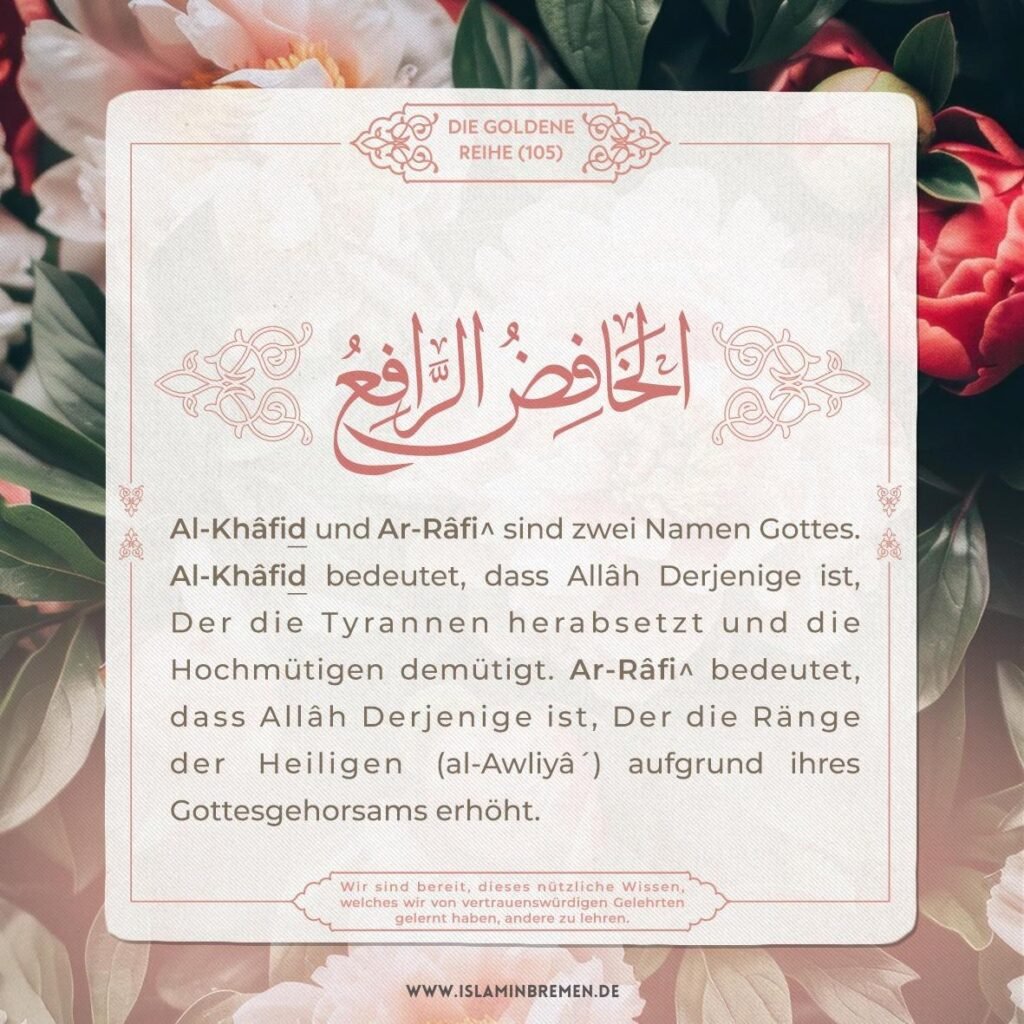 DIE GOLDENE
REIHE (105)
الخَافِضُ الرَّافِعُ
Al-Khâfiḏ und Ar-Râfi^ sind zwei Namen Gottes.
Al-Khâfiḏ bedeutet, dass Allâh Derjenige ist,
Der die Tyrannen herabsetzt und die
Hochmütigen demütigt. Ar-Râfi^ bedeutet,
dass Allâh Derjenige ist, Der die Ränge
der Heiligen (al-Awliyâ´) aufgrund ihres
Gottesgehorsams erhöht.
Wir sind bereit, dieses nützliche Wissen,
welches wir von vertrauenswürdigen Gelehrten
gelernt haben, andere zu lehren.
WWW.ISLAMINBREMEN.DE